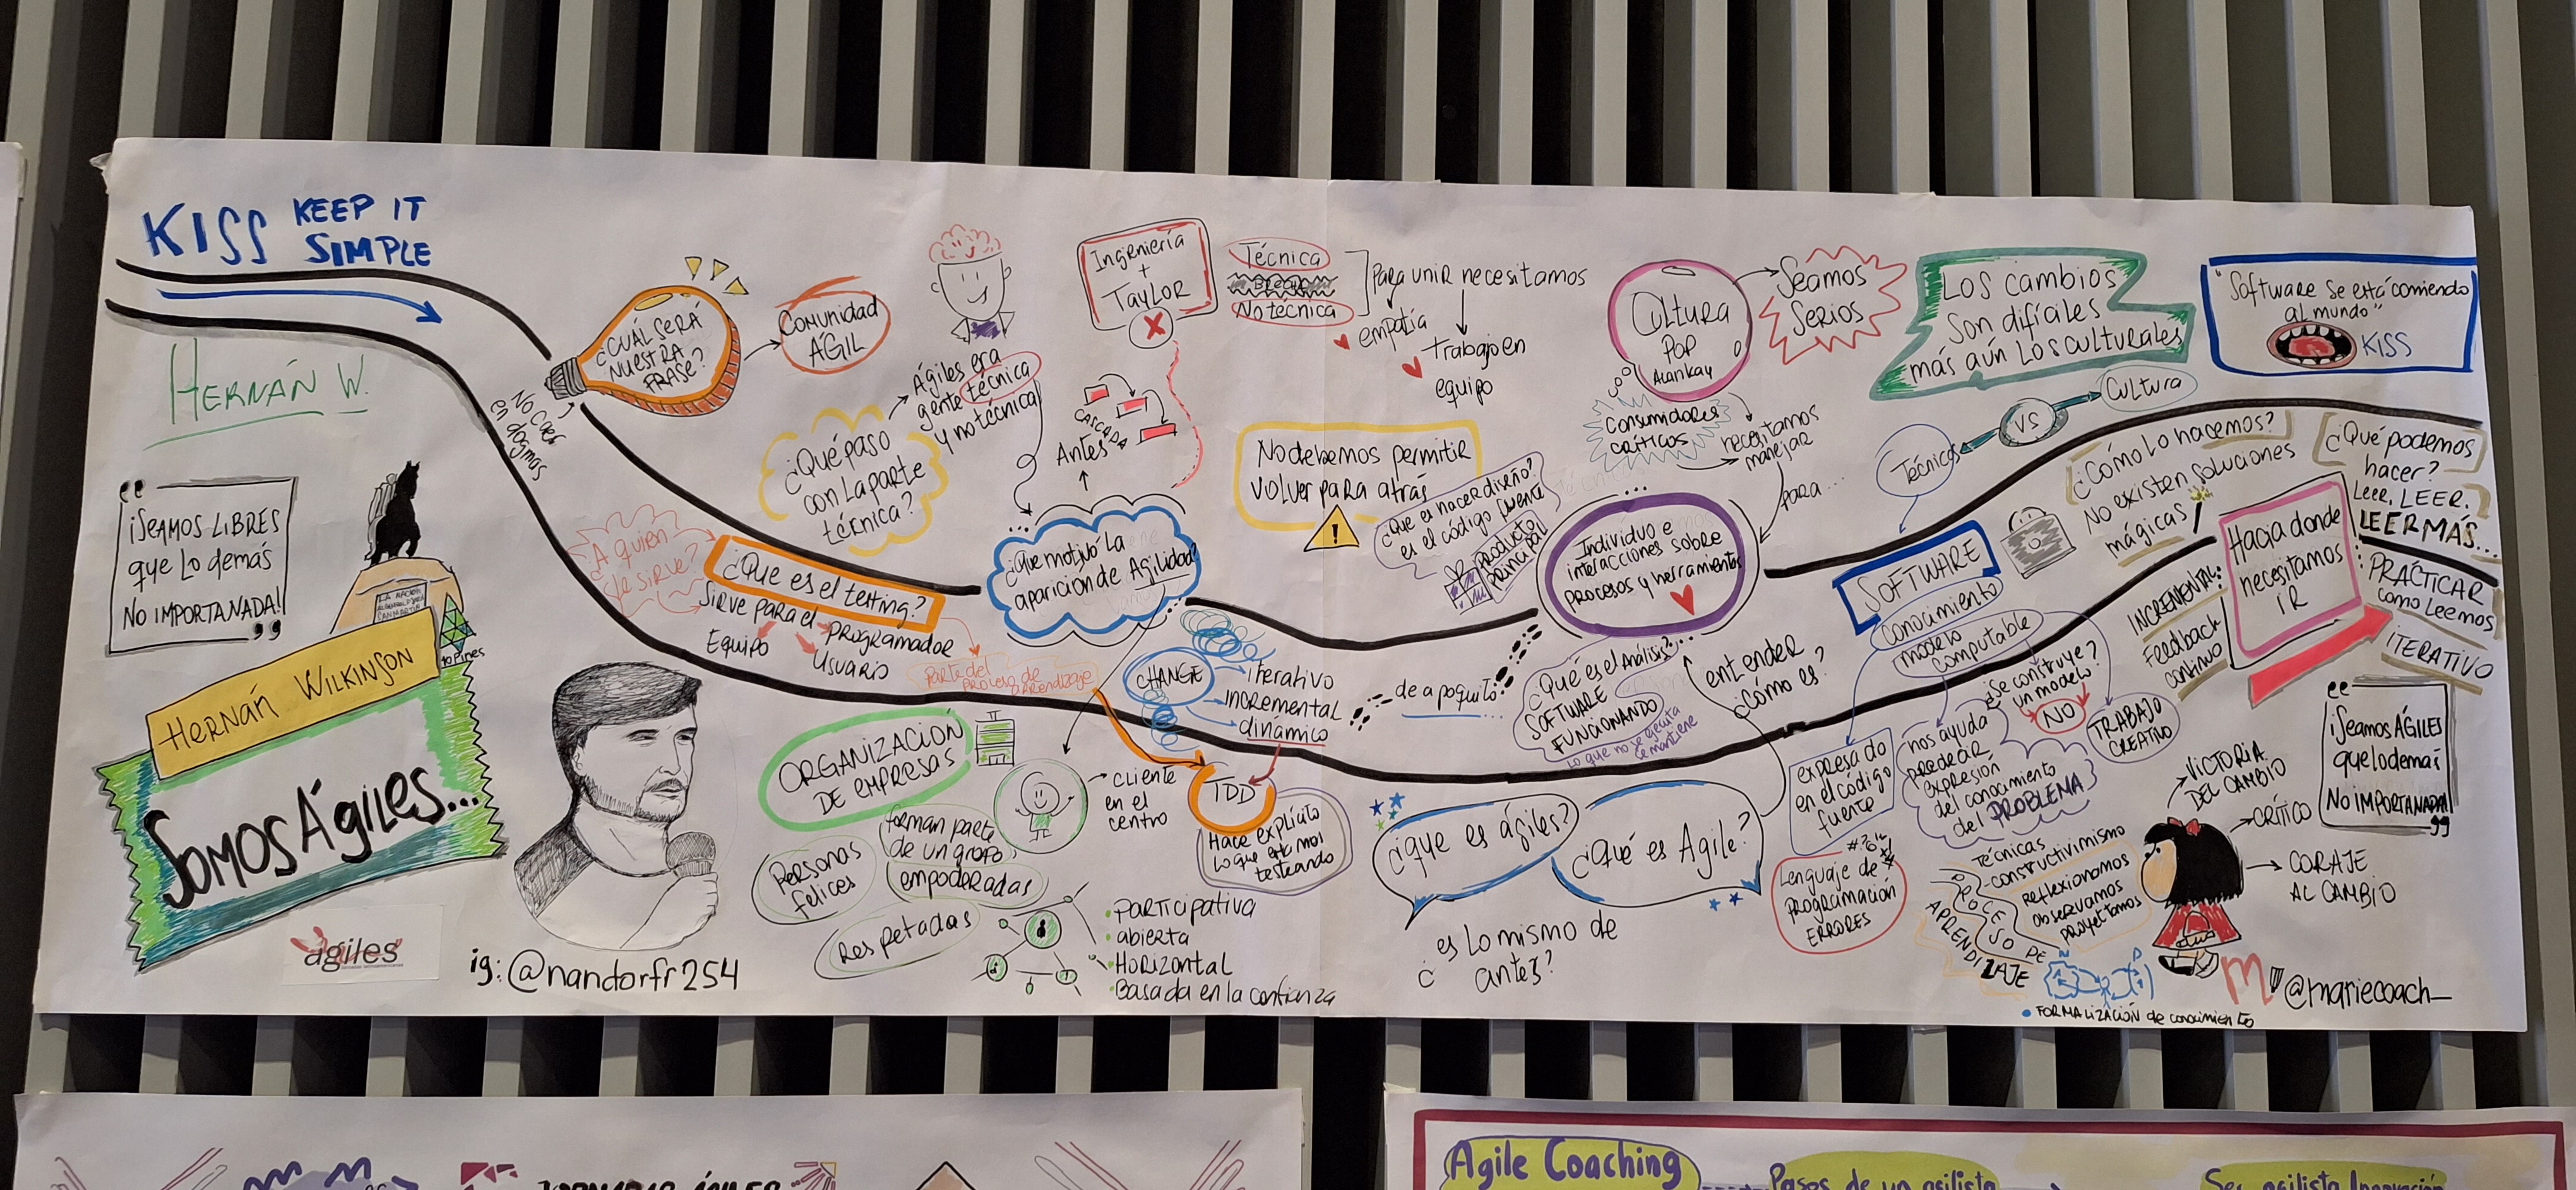 KISS KEEP IT
SIMPLE
HERNÁN W.
No caer
en dogmas
¿CUÁL SERÁ
NUESTRA
FRASE?
COMUNIDAD
ÁGIL
"
¡SEAMOS LIBRES
que lo demás
NO IMPORTA NADA!
"
10Pines
HERNÁN WILKINSON
Somos Ágiles...
ágiles
ig: @nandorfr254
¿Qué pasó
con la parte
técnica?
Ágiles era
gente técnica
y no técnica
Ingeniería
+
TAYLOR
X
Antes
CASCADA
Técnica
No técnica
Para unir necesitamos
empatía
Trabajo en
equipo
A quien
le sirve?
¿Que es el testing?
Sirve para el
Equipo
Usuario
programador
Parte del
proceso de
aprendizaje
¿Que motivó la
aparicion de Agilidad?
No debemos permitir
volver para atrás
!
¿Que es hacer diseño?
es el código fuente
producto
principal
Individuo e
interacciones sobre
procesos y herramientas
CULTURA
POP
Alankay
Seamos
Serios
Consumidores
críticos
necesitamos
manejar
para...
Los cambios
son difíciles
más aún los culturales
"Software se está comiendo
al mundo"
KISS
Técnico
VS
Cultura
¿Cómo lo hacemos?
No existen soluciones
mágicas
¿Qué podemos
hacer?
Leer, LEER,
LEER MÁS...
Hacia donde
necesitamos
IR
PRÁCTICAR
como leemos
ITERATIVO
INCREMENTAL
Feedback
continuo
SOFTWARE
Conocimiento
modelo
computable
¿Se construye?
un modelo?
NO
TRABAJO
CREATIVO
expresado
en el código
fuente
nos ayuda
expresión
del conocimiento
del PROBLEMA
Lenguaje de
programación
ERRORES
CHANGE
iterativo
incremental
dinámico
de a poquito
TDD
Hace explícito
lo que estamos
testeando
¿Qué es el Análisis?
SOFTWARE
FUNCIONANDO
Lo que no se ejecuta
se mantiene
entender
¿Cómo es?
ORGANIZACIÓN
DE EMPRESAS
cliente
en el
centro
Personas
felices
forman parte
de un grafo
empoderadas
Respetadas
• PARTICIPATIVA
• abierta
• Horizontal
• Basada en la confianza
¿que es ágiles?
¿Qué es Agile?
¿es lo mismo de
antes?
Técnicas
constructivismo
reflexionamos
observamos
proyectamos
PROCESO DE
APRENDIZAJE
• FORMALIZACIÓN de conocimiento
VICTORIA
DEL CAMBIO
CRÍTICO
CORAJE
AL CAMBIO
"
¡Seamos ÁGILES
que lo demás
NO IMPORTA NADA!
"
@mariecoach_
JORNADAS ÁGILES
Agile Coaching
Pasos de un agilista
Ser agilista Innovación